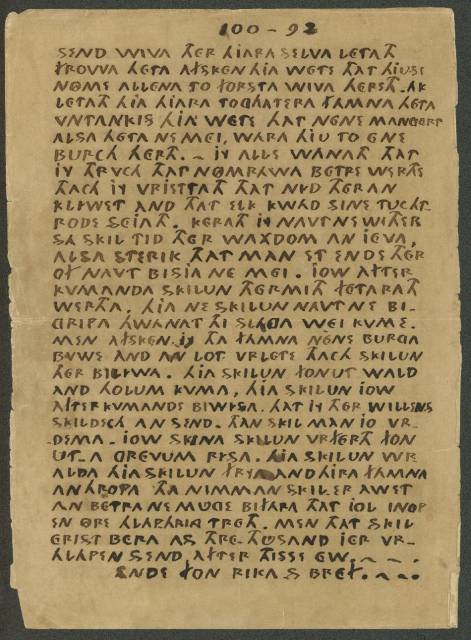 100 - 92
SEND WIVA THER HJARA SELVA LETATH
FROWA HETA AFSKEN HJA WETE THAT HJUSE
NOME ALLENA TO FORSTA WIVA HERETH. AK
LETATH HJA HJARA TOGHATERA FAMNA HETA
VNTANKIS HJA WETE THAT NENE MANGERT
ALSA HETA NE MEI, WARA HJU TO ENE
BURCH HERTH. ~ JI ALLE WANATH THAT
JI THRVCH THAT NOMRAWA BETRE WERTHE
THACH JI VRJETTATH THAT NYD THER AN
KLIWET AND THAT ELK KWAD SINE TUCHT-
RODE SEJATH. KERATH JI NAVT NE WITHER
SA SKIL TID THER WAXDOM AN JEVA,
ALSA STERIK THAT MAN ET ENDE THER
OF NAVT BISIA NE MEI. JOW AFTER
KVMANDA SKILUN THERMITH FETERATH
WERTHA, HJA NE SKILUN NAVT NE BI-
GRIPA HWANAT THI SLAGA WEI KVME.
MEN AFSKEN JI THA FAMNA NENE BURGA
BVWE AND AN LOT VRLETE THACH SKILUN
THER BILIWA. HJA SKILUN FON UT WALD
AND HOLUM KUMA, HJA SKILUN JOW
AFTERKVMANDE BIWISA. THAT JI THER WILLENS
SKILDECH AN SEND. THAN SKIL MAN JO VR-
DEMA. JOW SKINA SKILUN VRFERTH FON
UT-A GREVUM RYSA. HJA SKILUN WR
ALDA HJA SKILUN FRYA AND HJRA FAMNA
ANHROPA THA NIMMAN SKIL-ER AWET
AN BETRA NE MUGE BIFARA THAT JOL INOP
EN ORE HLAPHRING TRETH. MEN THAT SKIL
ERIST BERA AS THRE THUSAND JER VR-
HLAPEN SEND, AFTER THISSE EW. ~ ~
ENDE FON RIKA-S BREF. ~ ~